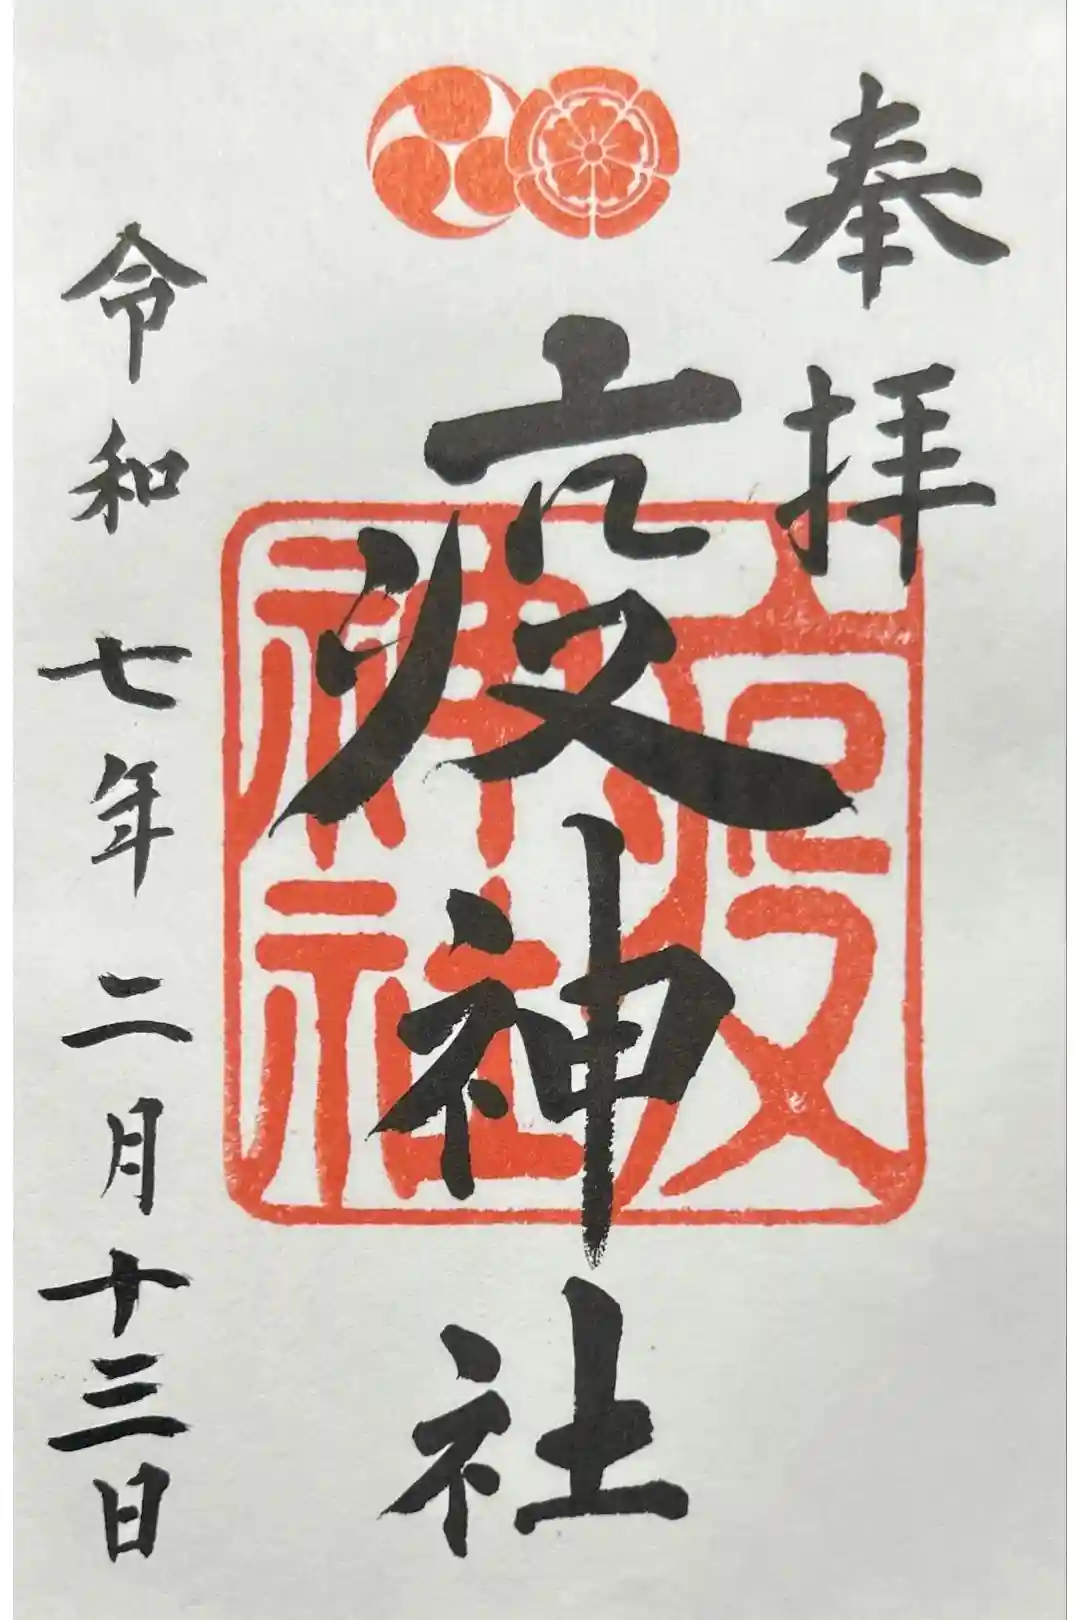 奉拝
疫神社
疫
神社
令和七年二月十三日